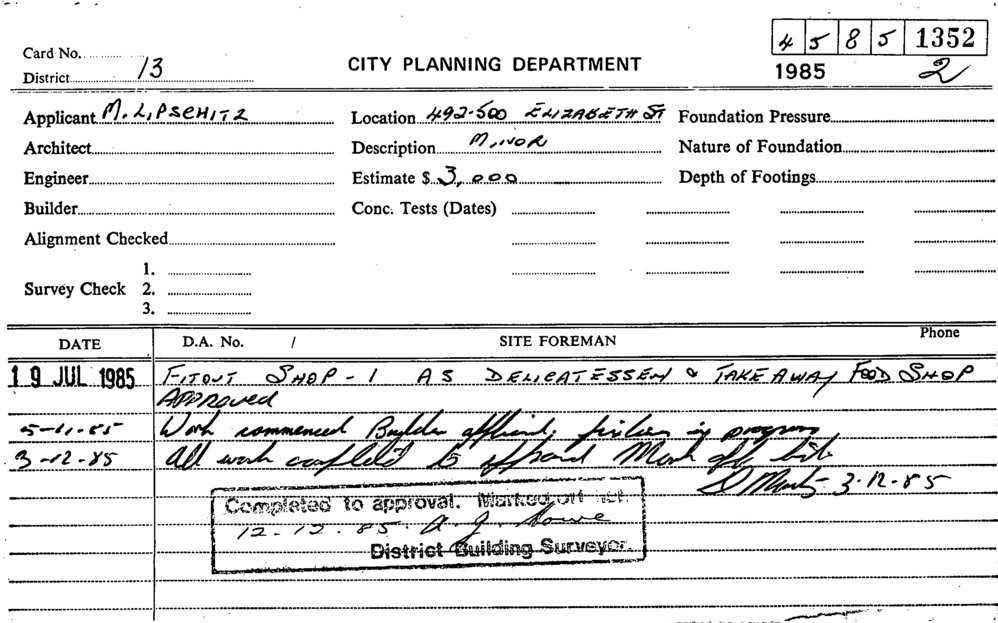 4 5 8 5 1352
Card No.
District 13
CITY PLANNING DEPARTMENT
1985 2
Applicant M. LIPSCHITZ Location 492-500 ELIZABETH ST Foundation Pressure
Architect Description MINOR Nature of Foundation
Engineer Estimate $ 3,000 Depth of Footings
Builder Conc. Tests (Dates)
Alignment Checked
1.
Survey Check 2.
3.
DATE D.A. No. / SITE FOREMAN Phone
19 JUL 1985 FITOUT SHOP-1 AS DELICATESSEN & TAKE AWAY FOOD SHOP
APPROVED
5-11-85 Work commenced Builder in progress
3-12-85 All work completed to approval Mark off list
3.12.85
Completed to approval. Marked off list.
12.12.85. A. J.
District Building Surveyor.